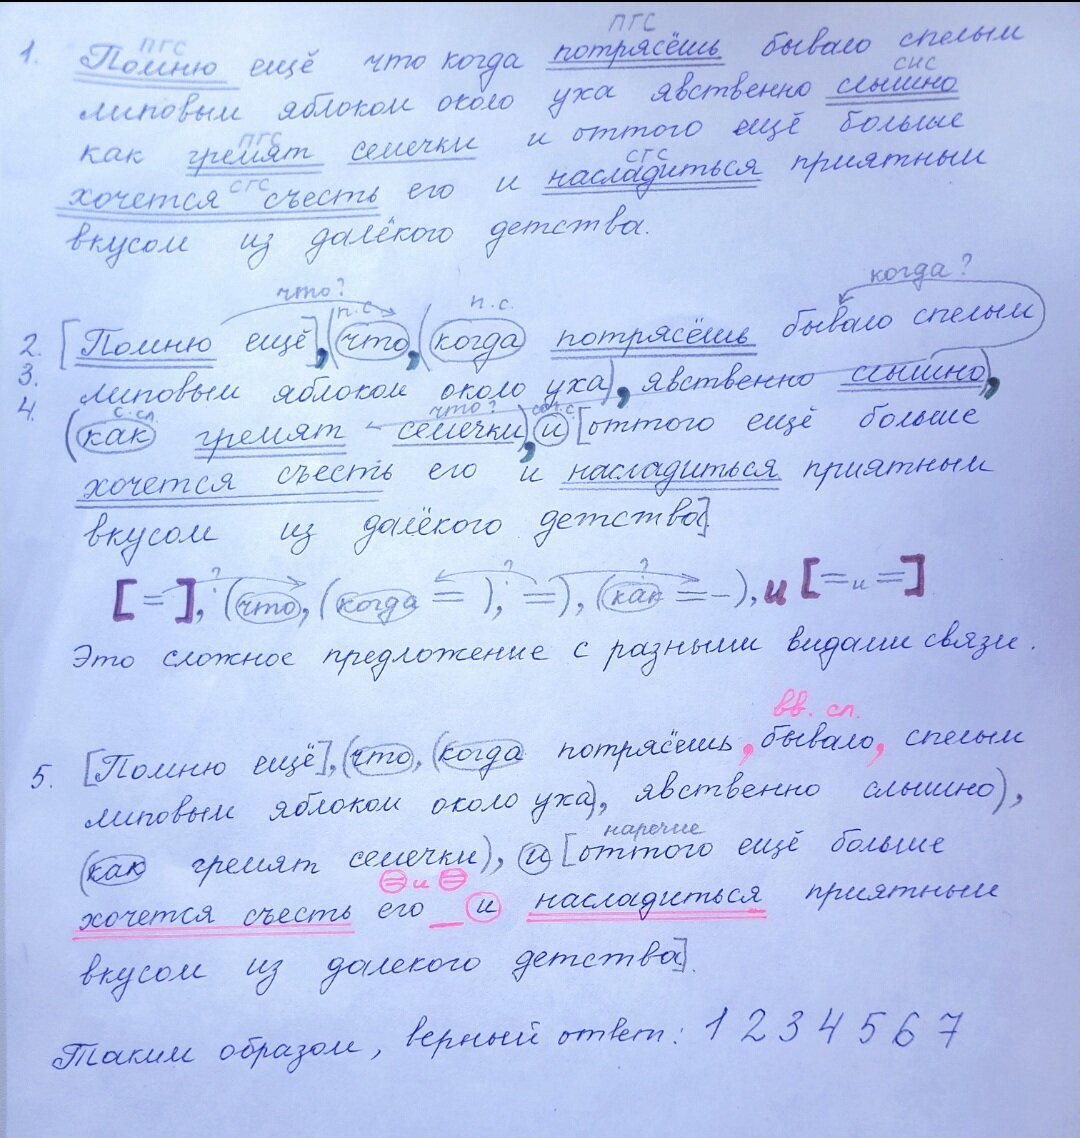 ПГС ПГС
1. Помню ещё что когда потрясёшь бывало спелым
СИС
липовым яблоком около уха явственно слышно
ПГС
как гремят семечки и оттого ещё больше
СГС СГС
хочется съесть его и насладиться приятным
вкусом из далёкого детства.
что? когда?
п.с. п.с.
2. [Помню ещё], (что, (когда потрясёшь бывало спелым
3. липовым яблоком около уха), явственно слышно),
с.сл. что? соч.с.
4. (как гремят семечки), и [оттого ещё больше
хочется съесть его и насладиться приятным
вкусом из далёкого детства]
? ? ?
[=], (что, (когда = ), =), (как =-), и [= и =]
Это сложное предложение с разными видами связи.
вв. сл.
5. [Помню ещё], (что, (когда потрясёшь, бывало, спелым
липовым яблоком около уха), явственно слышно),
наречие
(как гремят семечки), и [оттого ещё больше
и
хочется съесть его _ и насладиться приятным
вкусом из далекого детства].
Таким образом, верный ответ: 1 2 3 4 5 6 7